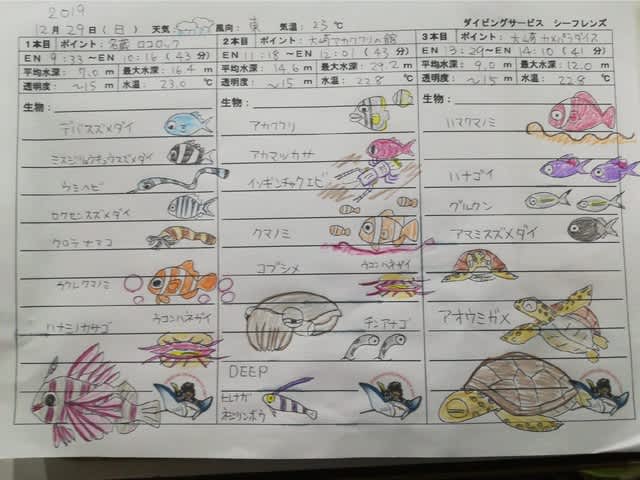 2019
12月29日(日) 天気 風向: 東 気温: 23℃ ダイビングサービス シーフレンズ
1本目 ポイント: 名蔵 ロコロック
EN 9:33 ~EN 10:16 (43分)
平均水深: 7.0 m 最大水深: 16.4 m
透明度: ~15 m 水温: 23.0 ℃
生物:
デバスズメダイ
ミスジリュウキュウスズメダイ
ウミヘビ
ロクセンスズメダイ
クロテナマコ
クラウンクマノミ
ハナミノカサゴ
ウコンハネガイ
2本目 ポイント: 大崎アカククリの館
EN 11:18 ~EN 12:01 (43分)
平均水深: 14.6 m 最大水深: 29.2 m
透明度: ~15 m 水温: 22.8 ℃
生物:
アカククリ
アカマツカサ
イソギンチャクエビ
クマノミ
コブシメ
ウコンハネガイ
チンアナゴ
DEEP
ヒレナガ
ネジリンボウ
3本目 ポイント: 大崎 カメパラダイス
EN 13:29 ~EN 14:10 (41分)
平均水深: 9.0 m 最大水深: 12.0 m
透明度: ~15 m 水温: 22.8 ℃
生物:
ハマクマノミ
ハナゴイ
グルクン
アマミスズメダイ
アオウミガメ